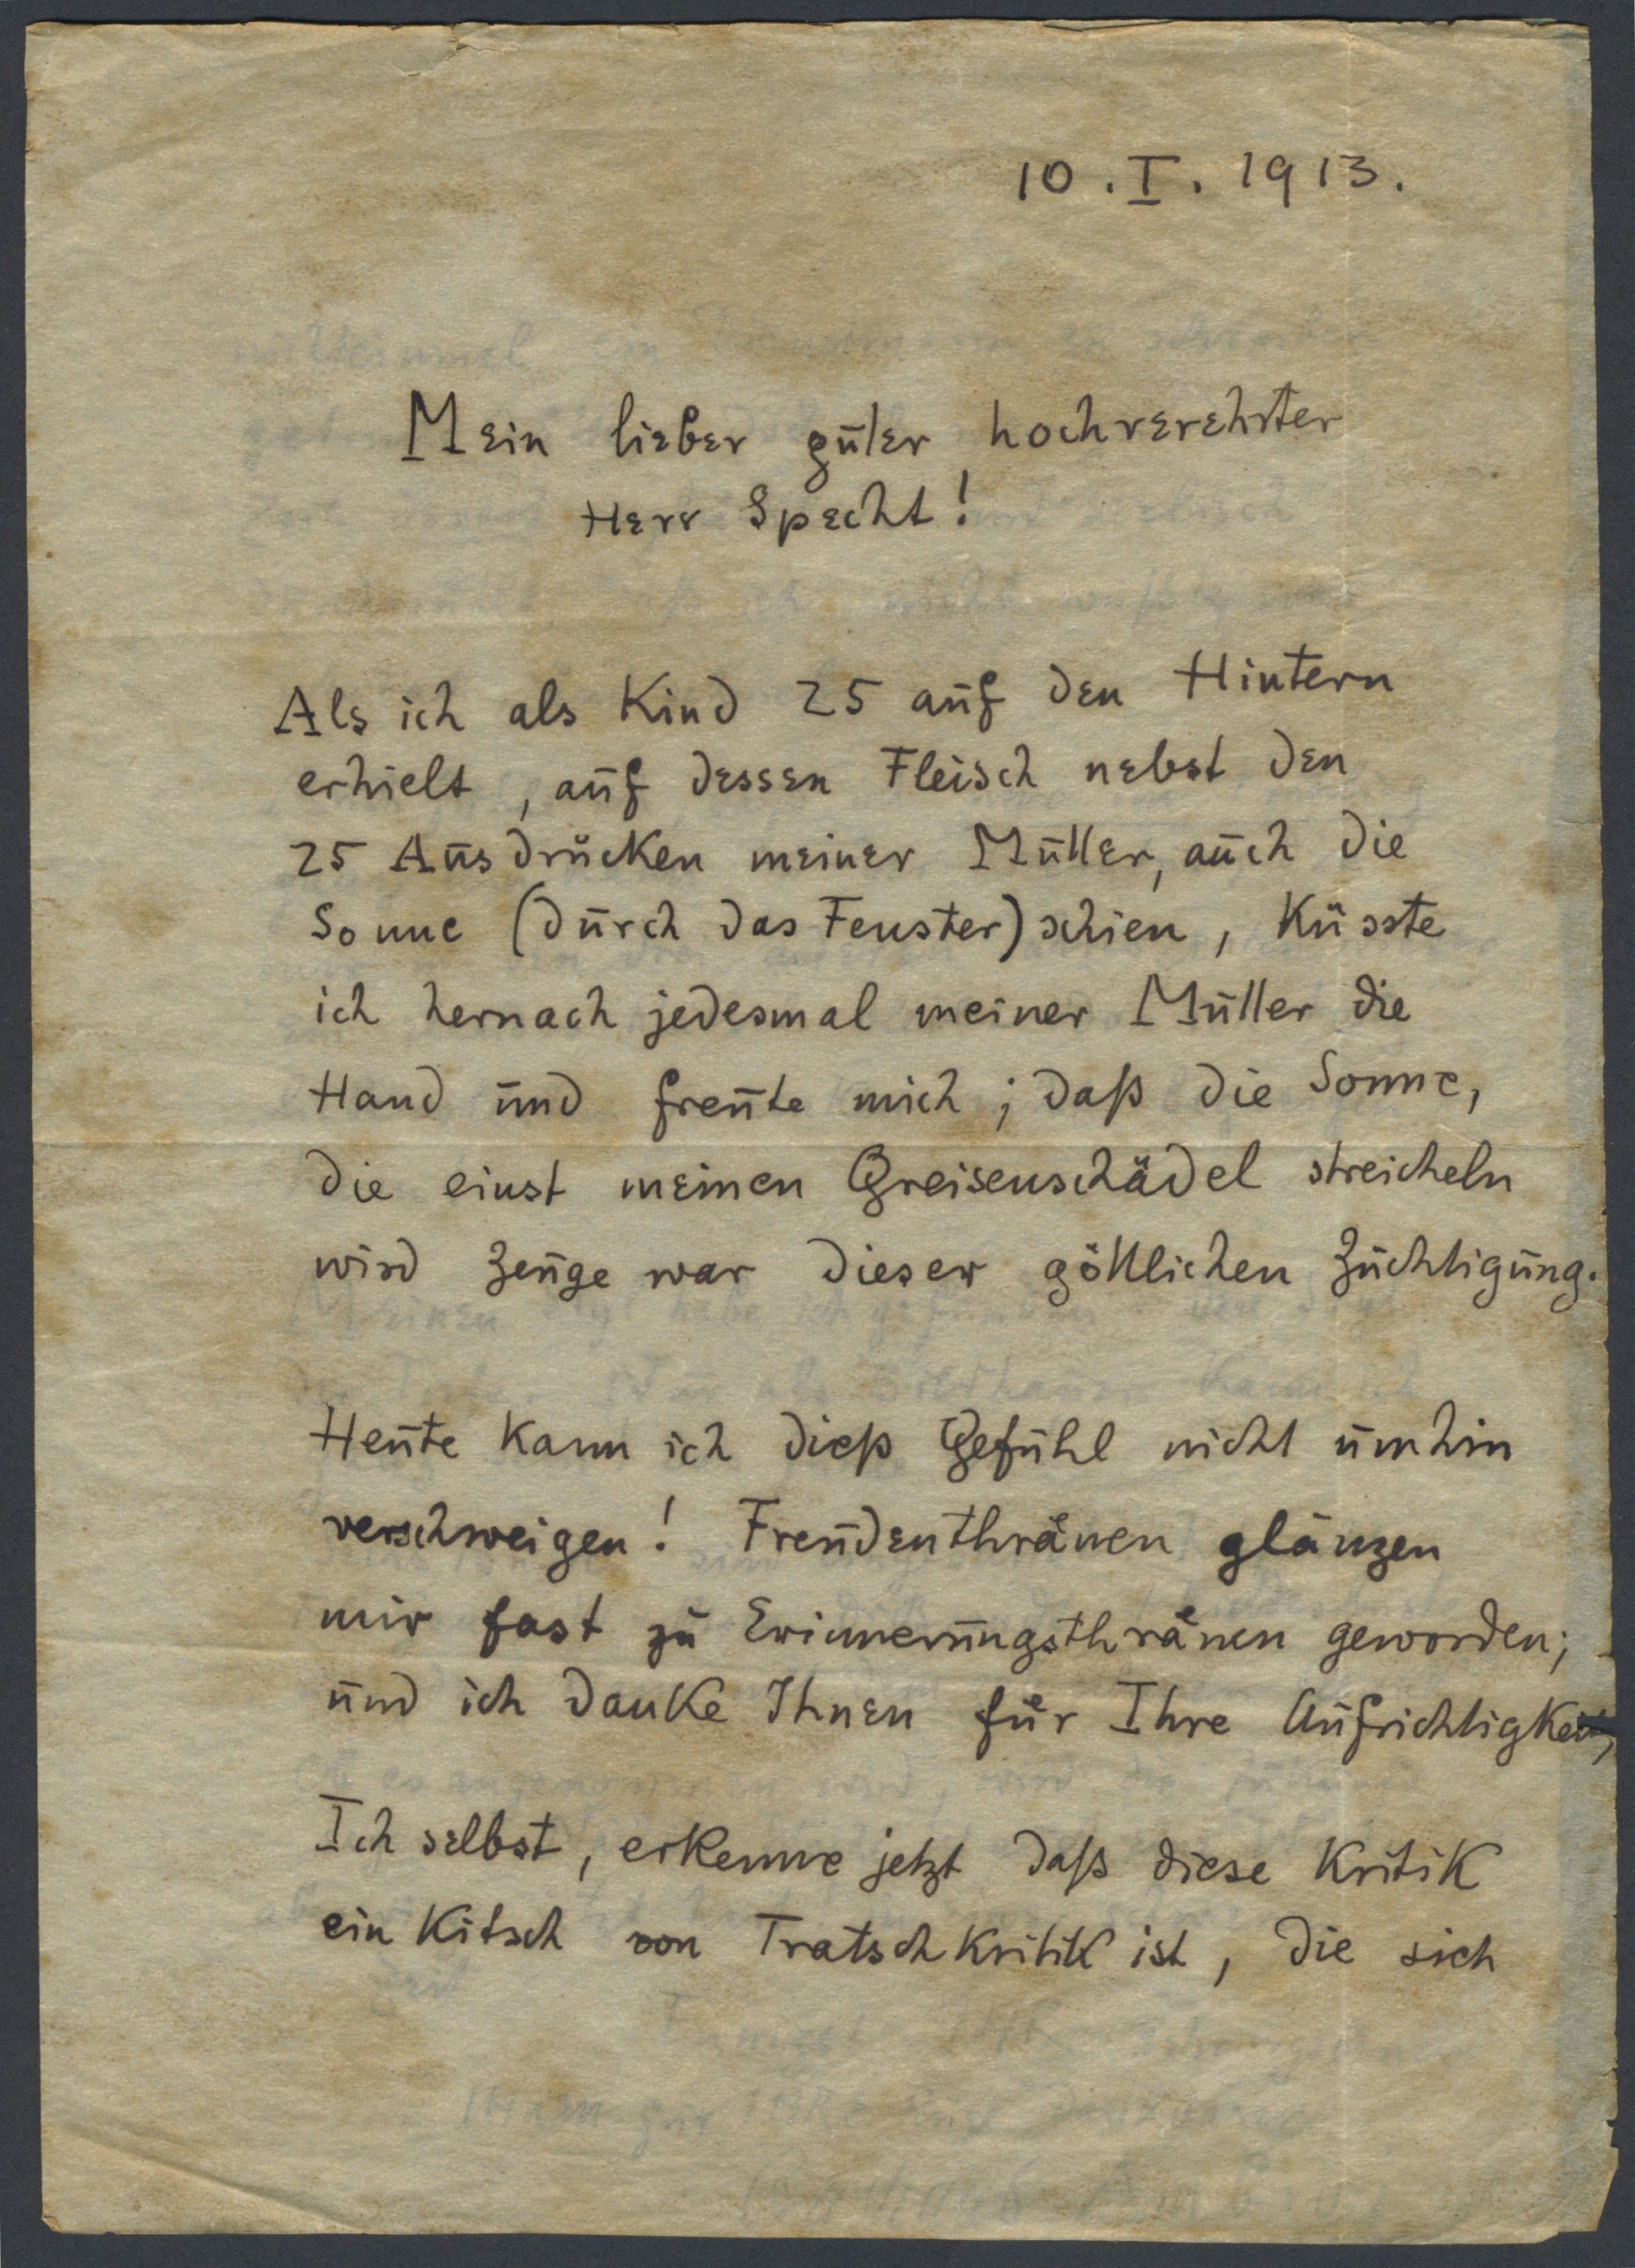 10. I. 1913.
Mein lieber guter hochverehrter
Herr Specht!
Als ich als Kind 25 auf den Hintern
erhielt, auf dessen Fleisch nebst den
25 Ausdrücken meiner Mutter, auch die
Sonne (durch das Fenster) schien, küsste
ich hernach jedesmal meiner Mutter die
Hand und freute mich; daß die Sonne,
die einst meinen Greisenschädel streicheln
wird Zeuge war dieser göttlichen Züchtigung.
Heute kann ich dieß Gefühl nicht umhin
verschweigen! Freudenthränen glänzen
mir fast zu Erinnerungsthränen geworden;
und ich danke Ihnen für Ihre Aufrichtigkeit,
Ich selbst, erkenne jetzt daß diese Kritik
ein Kitsch von Tratschkritik ist, die sich